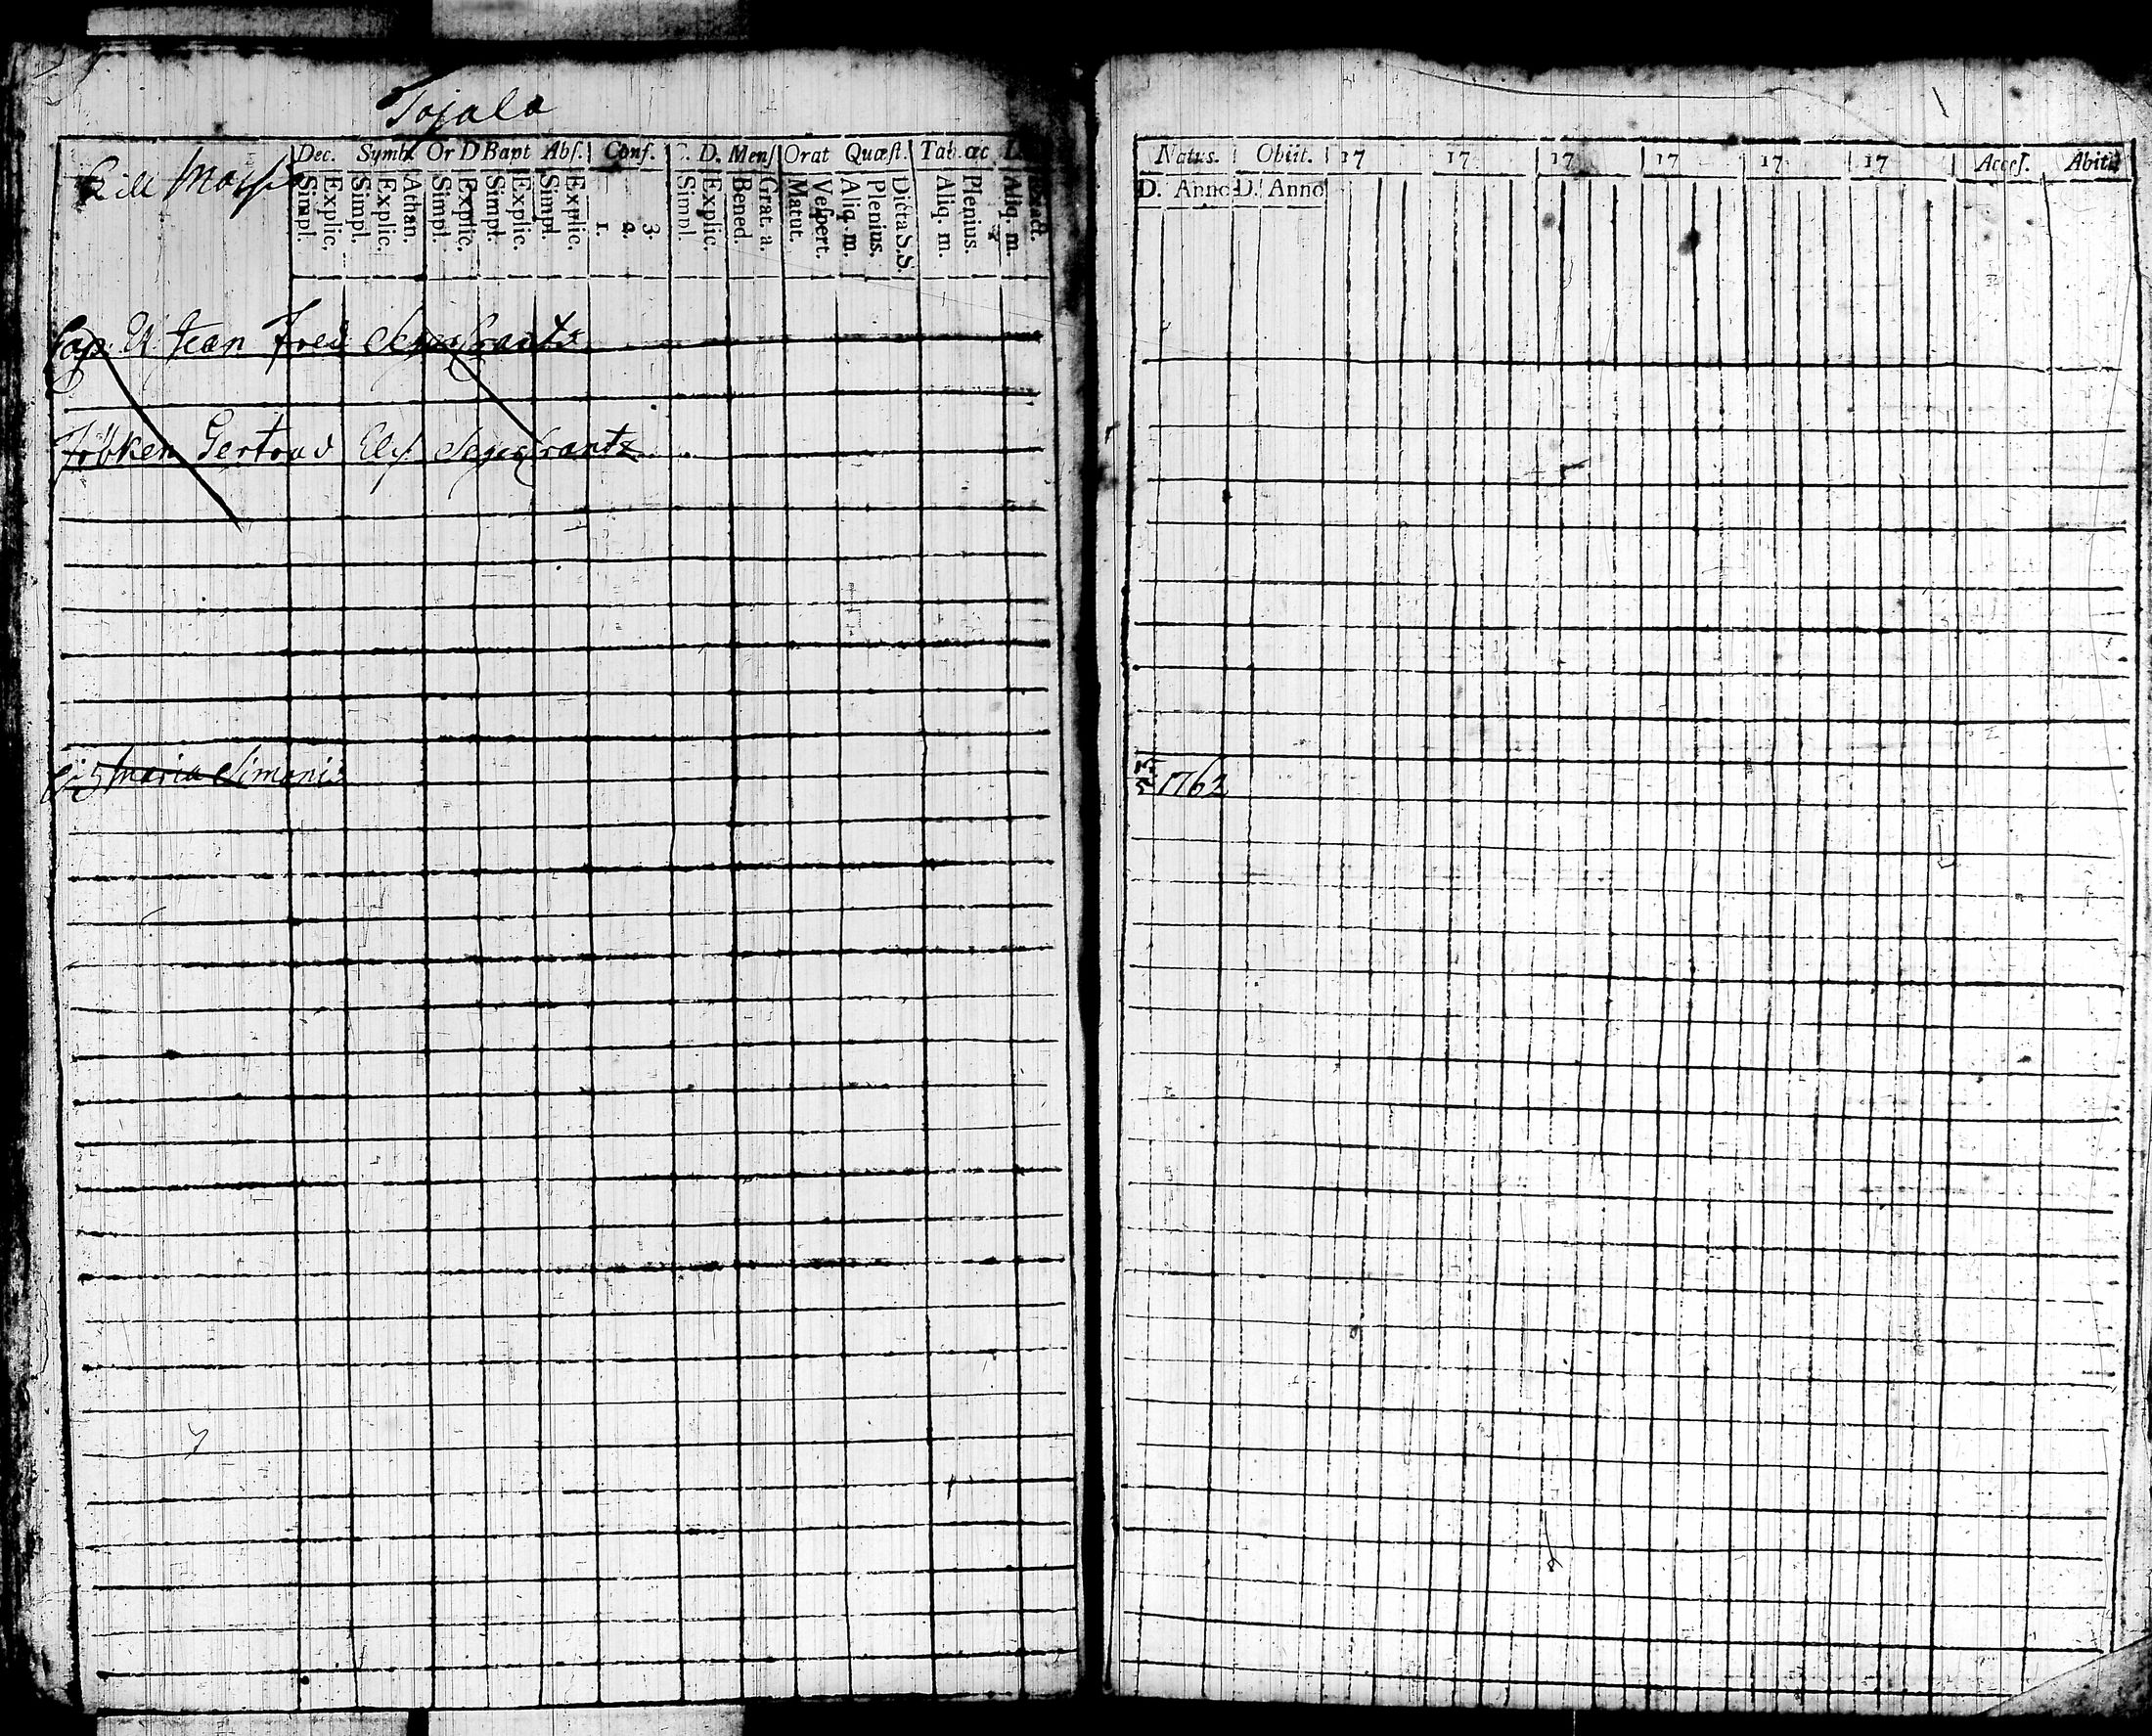 Tojala
Lill
Dec. Symb. Or D Bapt Abs. Conf. D. Mens Orat Quæst. Tab. œc
Simpl. Explic. Simpl. Explic. Athan. Simpl. Explic. Simpl. Explic. Simpl. Explic. 1. 2. 3. Simpl. Explic. Bened. Grat. a. Matut. Vespert. Aliq. m. Plenius. Dicta S.S. Aliq. m. Plenius. Aliq. m.
Cap. Jean Fred Segercrantz
Fröken Gertrud Elis Segercrantz
Maria Simonis
Natus. Obiit. 17 17 17 17 17 17 Acces. Abitu
D. Anno D. Anno
1762